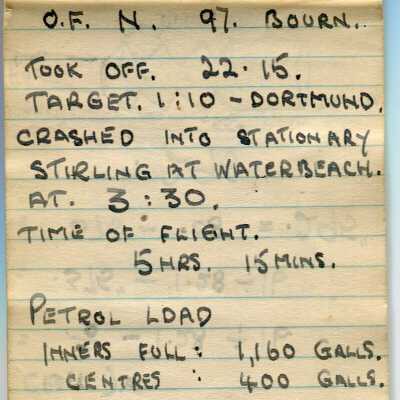 O.F. N. 97. BOURN..
TOOK OFF. 22.15.
TARGET. 1:10 - DORTMUND.
CRASHED INTO STATIONARY
STIRLING AT WATERBEACH.
AT. 3:30.
TIME OF FLIGHT.
5 HRS. 15 MINS.
PETROL LOAD
INNERS FULL: 1,160 GALLS.
CENTRES : 400 GALLS.